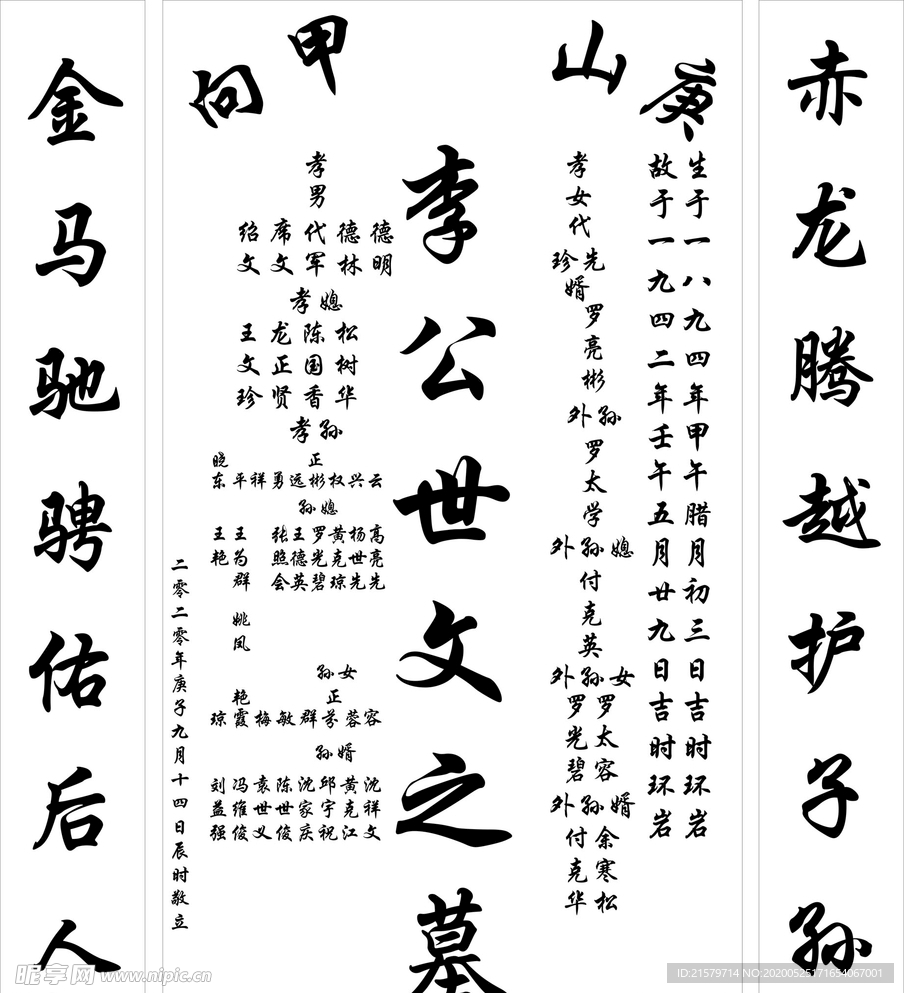 赤龙腾越护子孙
庚山甲向
生于一八九四年甲午腊月初三日吉时环岩
故于一九四二年壬午五月廿九日吉时环岩
孝女代
先珍
婿
罗亮彬
外孙
罗太学
外孙媳
付克英
外孙女
罗太容
罗光碧
外孙婿
余寒松
付克华
李公世文之墓
孝男
德明
德林
代军
席文
绍文
孝媳
松树华
陈国香
龙正贤
王文珍
孝孙
正
云兴权彬远勇祥平
晓东
孙媳
高亮先
杨世先
黄克琼
罗光碧
王德英
张照会
王为群
王艳
姚凤
孙女
正
容蓉芬群敏梅
艳霞琼
孙婿
沈祥文
黄克江
邱宇祝
沈家庆
陈世俊
袁世义
冯维俊
刘益强
二零二零年庚子九月十四日辰时敬立
金马驰骋佑后人
昵享网 www.nipic.cn
ID:21579714 NO:20200525171654067001